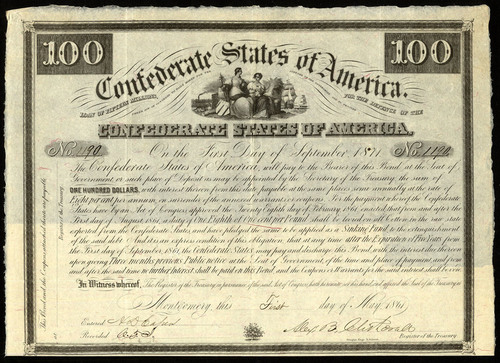 100
100
Confederate States of America.
LOAN OF FIFTEEN MILLIONS,
FOR THE DEFENCE OF THE
CONFEDERATE STATES OF AMERICA.
No. 1190
No. 1190
On the First Day of September 1871
The Confederate States of America, will pay to the Bearer of this Bond, at the Seat of
Government, or such place of deposit as may be appointed by the Secretary of the Treasury, the sum of
ONE HUNDRED DOLLARS, with interest thereon from this date, payable at the same place, semi-annually at the rate of
Eight per cent per annum, on surrender of the annexed warrants or Coupons. For the payment whereof the Confederate
States have by an Act of Congress approved the Twenty Eighth day of February 1861, enacted that from and after the
First day of August 1861, a duty of One Eighth of One Cent per Pound shall be levied on all Cotton in the raw state
exported from the Confederate States, and have pledged the same to be applied as a Sinking Fund to the extinguishment
of the said debt. And it is an express condition of this obligation, that at any time after the Expiration of Five Years from
the First day of September 1861, the Confederate States may pay and discharge this Bond, with the interest due thereon
upon giving Three months previous Public notice at the Seat of Government, of the time and place of payment, and from
and after the said time no further Interest shall be paid on this Bond and the Coupons or Warrants for the said interest shall be
In Witness whereof, The Register of the Treasury, in pursuance of the said Act of Congress, hath hereunto set his hand, and affixed the Seal of the Treasury at
Montgomery, this First day of May, 1861
Entered
Recorded
Register of the Treasury.